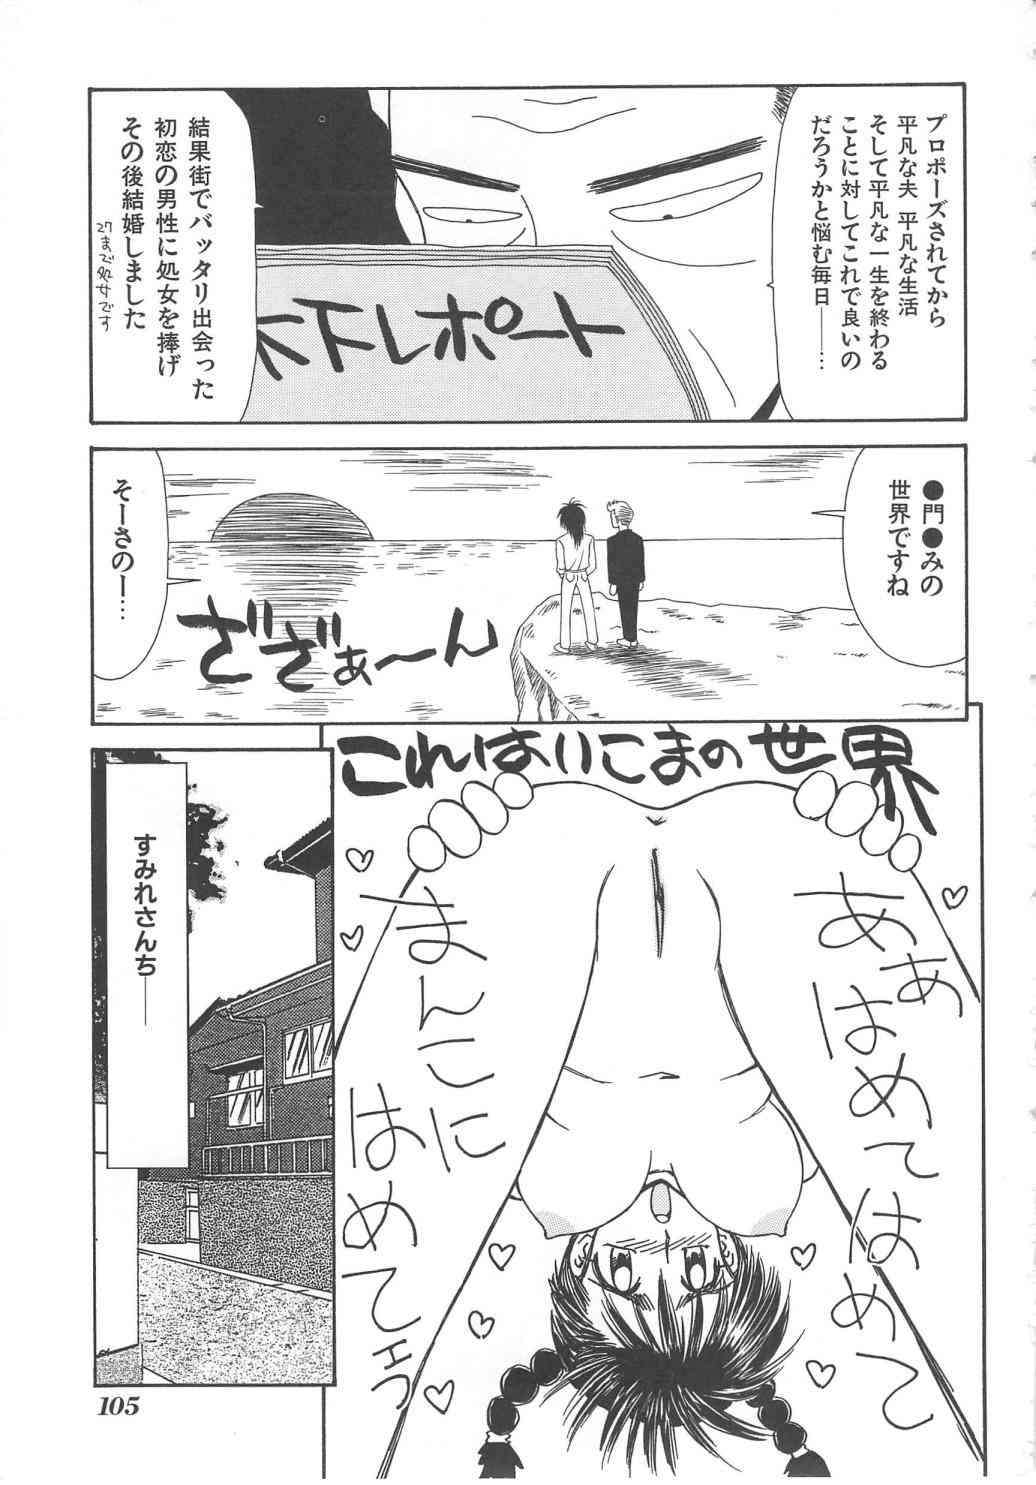 プロポーズされてから
平凡な夫 平凡な生活
そして平凡な一生を終わる
ことに対してこれで良いの
だろうかと悩む毎日――…
木下レポート
結果街でバッタリ出会った
初恋の男性に処女を捧げ
その後結婚しました
27まで処女です
●門●みの
世界ですね
ざざぁ〜ん
そーさのー…
これはりこまの世界
ああ
はめてはめて
まんこに
はめてェう
すみれさんち――
105